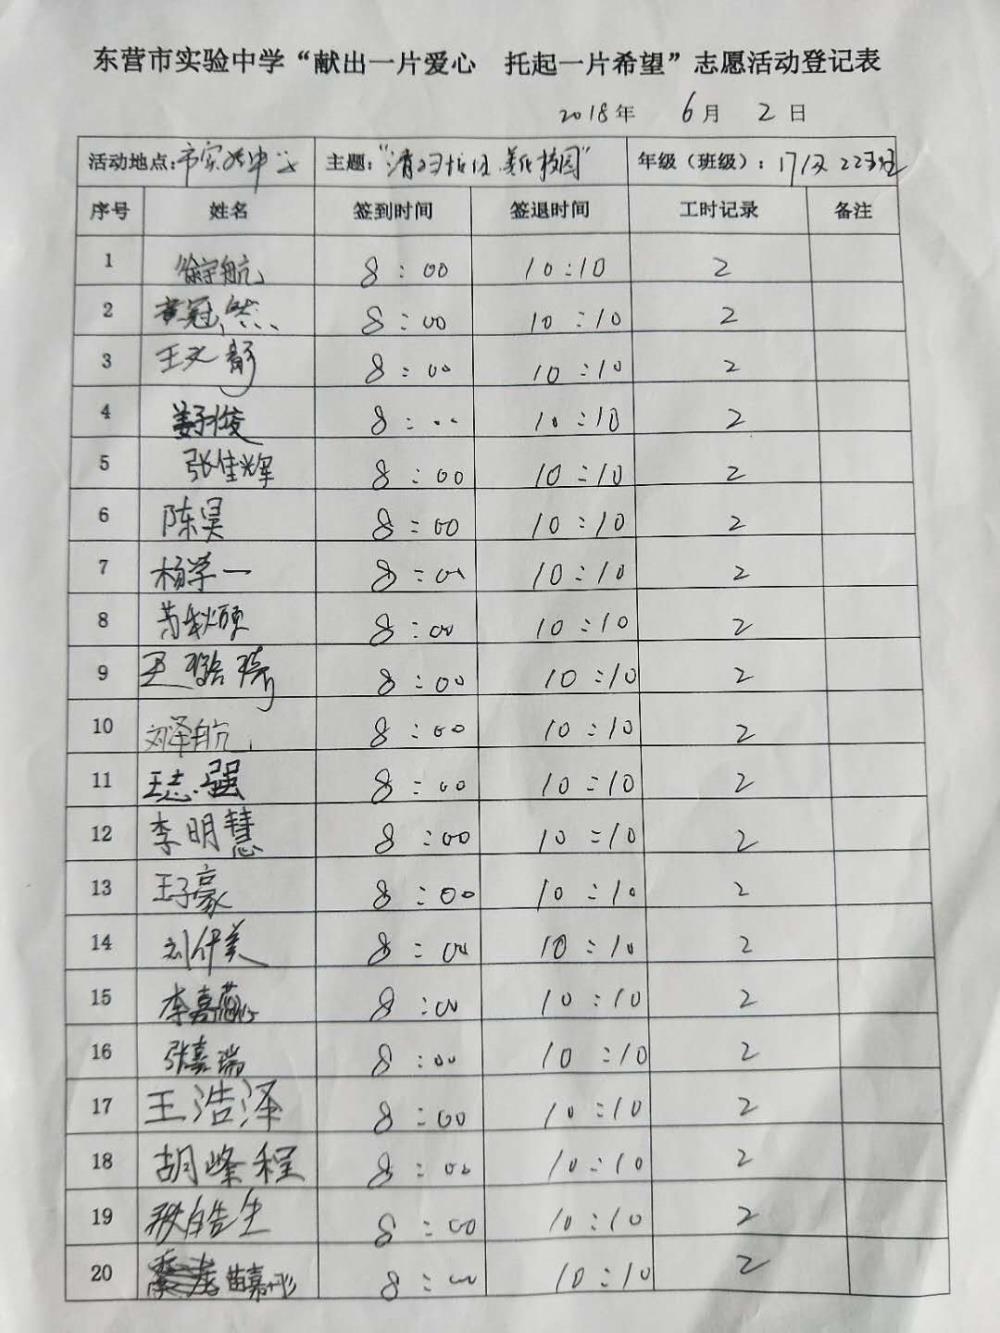 东营市实验中学“献出一片爱心 托起一片希望”志愿活动登记表
2018年 6月 2日
活动地点:市实验中学 主题:“清扫垃圾,美化校园” 年级（班级）: 17级 22班
序号 姓名 签到时间 签退时间 工时记录 备注
1 徐宇航 8:00 10:10 2
2 黄冠然 8:00 10:10 2
3 王文静 8:00 10:10 2
4 8:00 10:10 2
5 张佳辉 8:00 10:10 2
6 陈昊 8:00 10:10 2
7 杨学一 8:00 10:10 2
8 8:00 10:10 2
9 8:00 10:10 2
10 刘泽航 8:00 10:10 2
11 王志强 8:00 10:10 2
12 李明慧 8:00 10:10 2
13 王子豪 8:00 10:10 2
14 8:00 10:10 2
15 李嘉 8:00 10:10 2
16 张嘉瑞 8:00 10:10 2
17 王浩泽 8:00 10:10 2
18 胡峰程 8:00 10:10 2
19 皓生 8:00 10:10 2
20 苗嘉 8:00 10:10 2